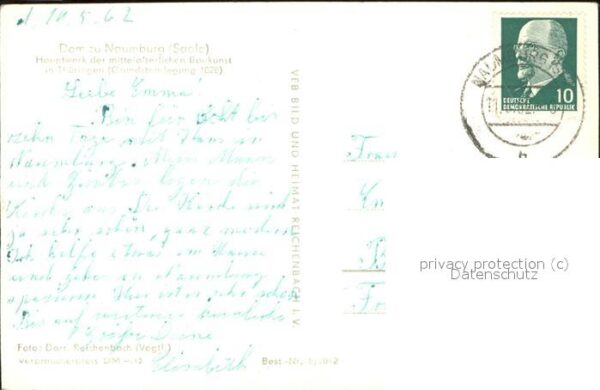 d. 10.5.62
Dom zu Naumburg (Saale)
Hauptwerk der mittelalterlichen Baukunst
in Thüringen (Grundsteinlegung 1028)
Liebe Emma!
Bin für acht bis
zehn Tage mit Hans in
Naumburg. Mein Mann
und
die
Kirche aus. Die Kirche wird
ja sehr schön, ganz modern
Ich helfe etwas im Hause
und gehe in Naumburg
spazieren. Hier ist es sehr schön
Bis auf weiteres herzliche
Grüße Deine
Elisabeth
Foto: Darr, Reichenbach (Vogtl)
Verbraucherpreis DM -.12
Best.-Nr.
VEB BILD UND HEIMAT REICHENBACH I. V.
NAUMBURG
10
DEUTSCHE
DEMOKRATISCHE REPUBLIK
b
Frau
privacy protection (c)
Datenschutz